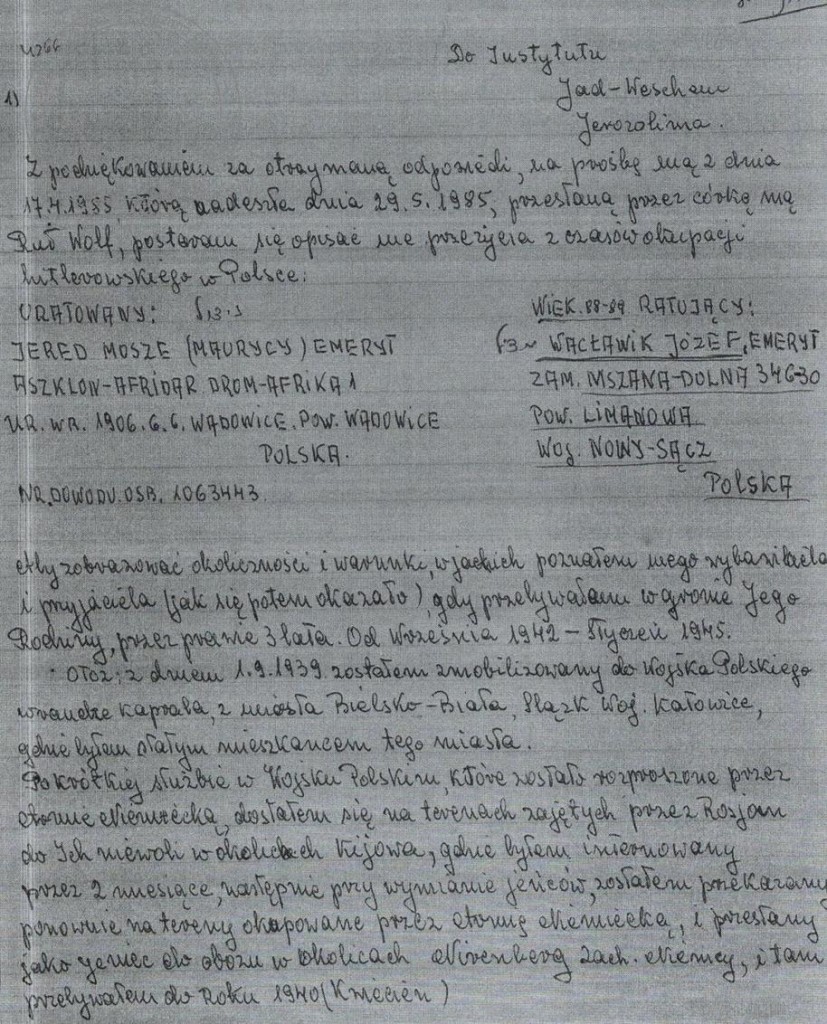 4266
Do Instytutu
1)
Jad-Weschem
Jerozolima.
Z podziękowaniem za otrzymaną odpowiedi, na prośbę mą z dnia
17.4.1985, którą nadeszła dnia 29.5.1985, przesłaną przez córkę mą
Rut Wolf, postaram się opisać me przeżycia z czasów okupacji
hitlerowskiego w Polsce:
URATOWANY:
JERED MOSZE (MAURYCY) EMERYT
ASZKLON-AFRIDAR DROM-AFRIKA 1
UR. WR. 1906.6.6. WADOWICE. POW. WADOWICE
POLSKA.
NR. DOWODU.OSB. 1063443.
WIEK. 88-89 RATUJĄCY:
WACŁAWIK JÓZEF, EMERYT
ZAM. MSZANA-DOLNA 34630
POW. LIMANOWA
WOJ. NOWY-SĄCZ
POLSKA
Aby zobrazować okoliczności i warunki, w jackich poznałem mego wybawiciela
i przyjaciela (jak się potem okazało), gdy przebywałam w gronie Jego
Rodziny, przez prawie 3 lata. Od Września 1942 – Styczeń 1945.
Otoż; z dniem 1.9.1939 zostałem zmobilizowany do Wojska Polskiego
w randze kaprala, z miasta Bielsko-Biała, Slązk Woj. Katowice,
gdzie byłem stałym mieszkańcem tego miasta.
Po krótkiej służbie w Wojsku Polskim, które zostało rozproszone przez
Armie Niemiecką, dostałem się na terenach zajętych przez Rosjan
do Ich niewoli w okolicach Kijowa, gdzie byłem internowany
przez 2 miesiące, następnie przy wymianie jeńców, zostałem przekazany
ponownie na tereny okupowane przez Armię Niemiecką, i przesłany
jako jeniec do obozu w okolicach Nirenberg Zach. Niemcy, i tam
przebywałem do Roku 1940 (Kwiecień)